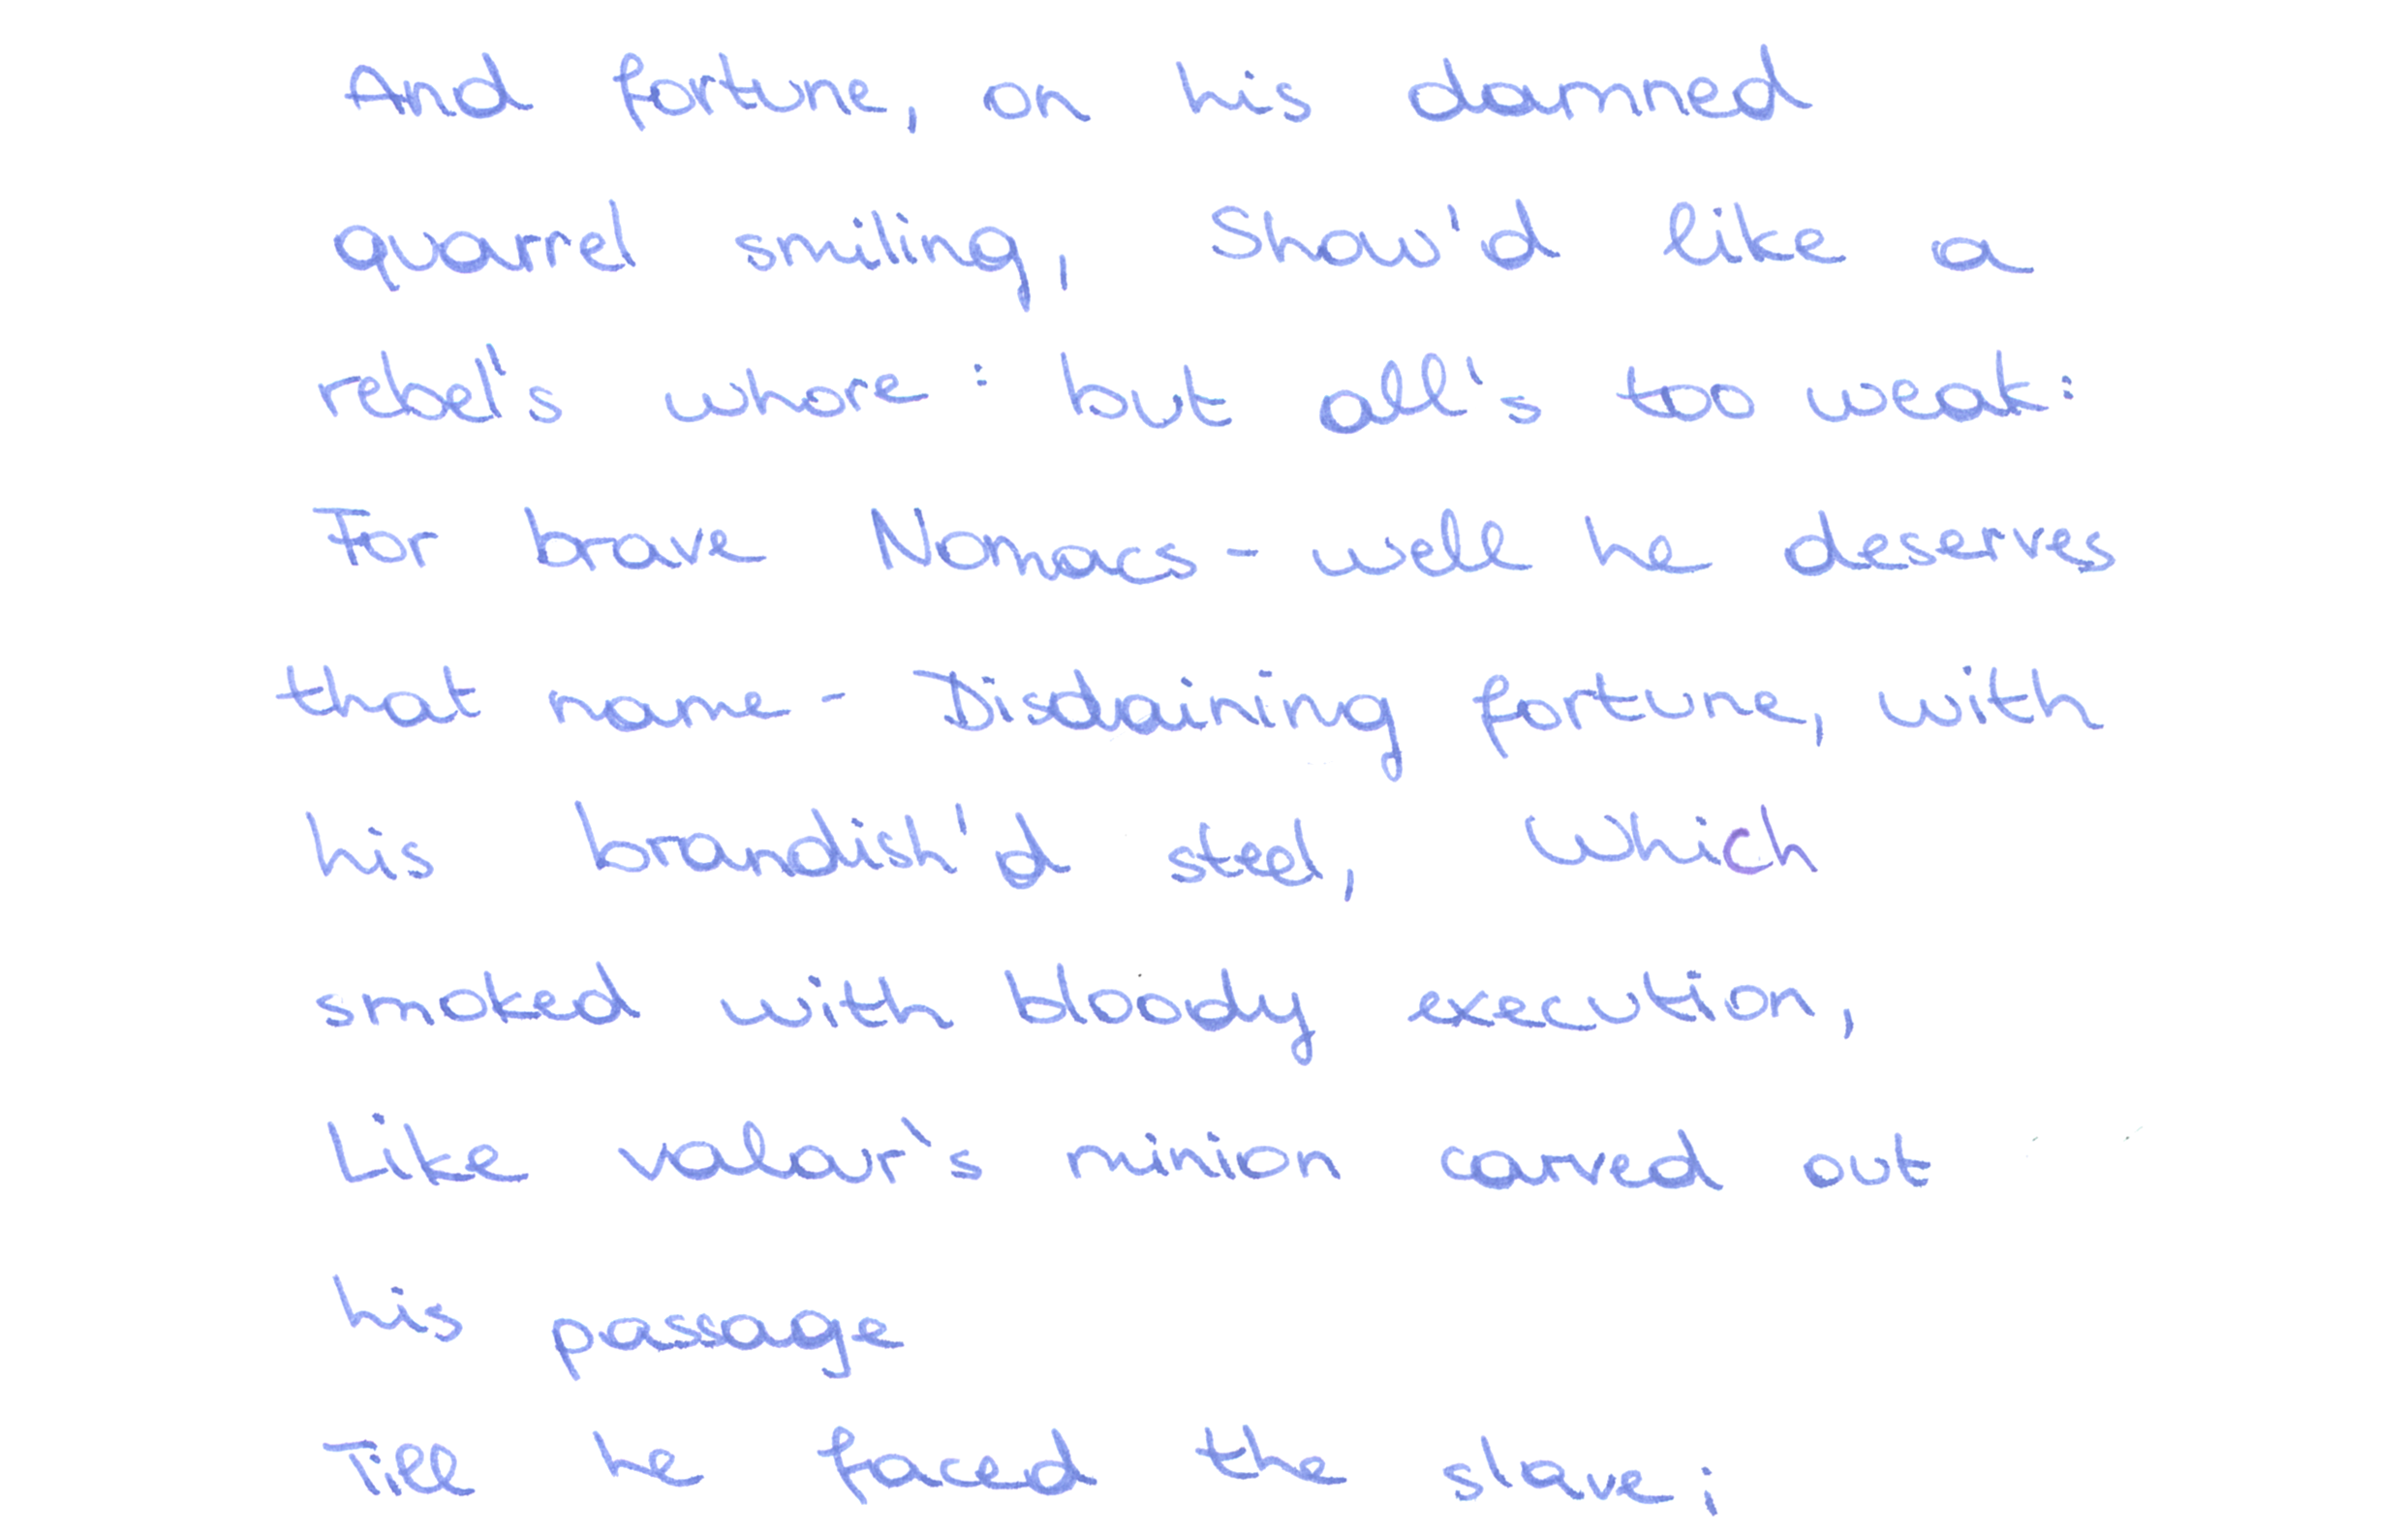 And fortune, on his damned
quarrel smiling, Show'd like a
rebel's whore : but all's too weak:
For brave Nomacs - well he deserves
that name - Disdaining fortune, with
his brandish'd steel, Which
smoked with bloody execution,
Like valour's minion carved out
his passage
Till he faced the slave;